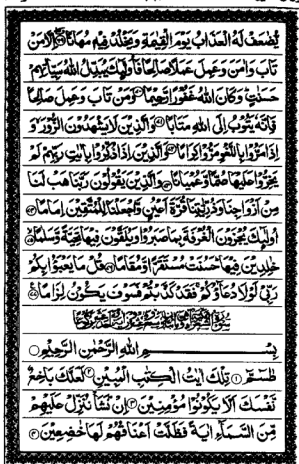 يُّضٰعَفْ لَهُ الْعَذَابُ يَوْمَ الْقِيٰمَةِ وَيَخْلُدْ فِيْهٖ مُهَانًا ۝۶۹ اِلَّا مَنْ
تَابَ وَاٰمَنَ وَعَمِلَ عَمَلًا صَالِحًا فَاُولٰٓئِكَ يُبَدِّلُ اللّٰهُ سَيِّاٰتِهِمْ
حَسَنٰتٍ ؕ وَكَانَ اللّٰهُ غَفُوْرًا رَّحِيْمًا ۝۷۰ وَمَنْ تَابَ وَعَمِلَ صَالِحًا
فَاِنَّهٗ يَتُوْبُ اِلَى اللّٰهِ مَتَابًا ۝۷۱ وَالَّذِيْنَ لَا يَشْهَدُوْنَ الزُّوْرَ ۙ وَ
اِذَا مَرُّوْا بِاللَّغْوِ مَرُّوْا كِرَامًا ۝۷۲ وَالَّذِيْنَ اِذَا ذُكِّرُوْا بِاٰيٰتِ رَبِّهِمْ لَمْ
يَخِرُّوْا عَلَيْهَا صُمًّا وَّعُمْيَانًا ۝۷۳ وَالَّذِيْنَ يَقُوْلُوْنَ رَبَّنَا هَبْ لَنَا
مِنْ اَزْوَاجِنَا وَذُرِّيّٰتِنَا قُرَّةَ اَعْيُنٍ وَّاجْعَلْنَا لِلْمُتَّقِيْنَ اِمَامًا ۝۷۴
اُولٰٓئِكَ يُجْزَوْنَ الْغُرْفَةَ بِمَا صَبَرُوْا وَيُلَقَّوْنَ فِيْهَا تَحِيَّةً وَّسَلٰمًا ۝۷۵
خٰلِدِيْنَ فِيْهَا ؕ حَسُنَتْ مُسْتَقَرًّا وَّمُقَامًا ۝۷۶ قُلْ مَا يَعْبَؤُا بِكُمْ
رَبِّيْ لَوْلَا دُعَآؤُكُمْ ۚ فَقَدْ كَذَّبْتُمْ فَسَوْفَ يَكُوْنُ لِزَامًا ۝۷۷
بِسْمِ اللّٰهِ الرَّحْمٰنِ الرَّحِيْمِ
طٰسٓمّٓ ۝۱ تِلْكَ اٰيٰتُ الْكِتٰبِ الْمُبِيْنِ ۝۲ لَعَلَّكَ بَاخِعٌ
نَّفْسَكَ اَلَّا يَكُوْنُوْا مُؤْمِنِيْنَ ۝۳ اِنْ نَّشَاْ نُنَزِّلْ عَلَيْهِمْ
مِّنَ السَّمَآءِ اٰيَةً فَظَلَّتْ اَعْنَاقُهُمْ لَهَا خٰضِعِيْنَ ۝۴